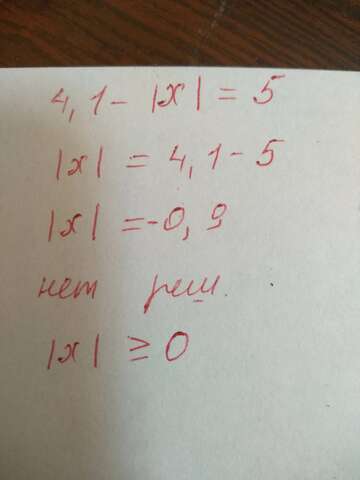 4,1-|x|=5
|x|=4,1-5
|x|=-0,9
нет реш.
|x|≥0